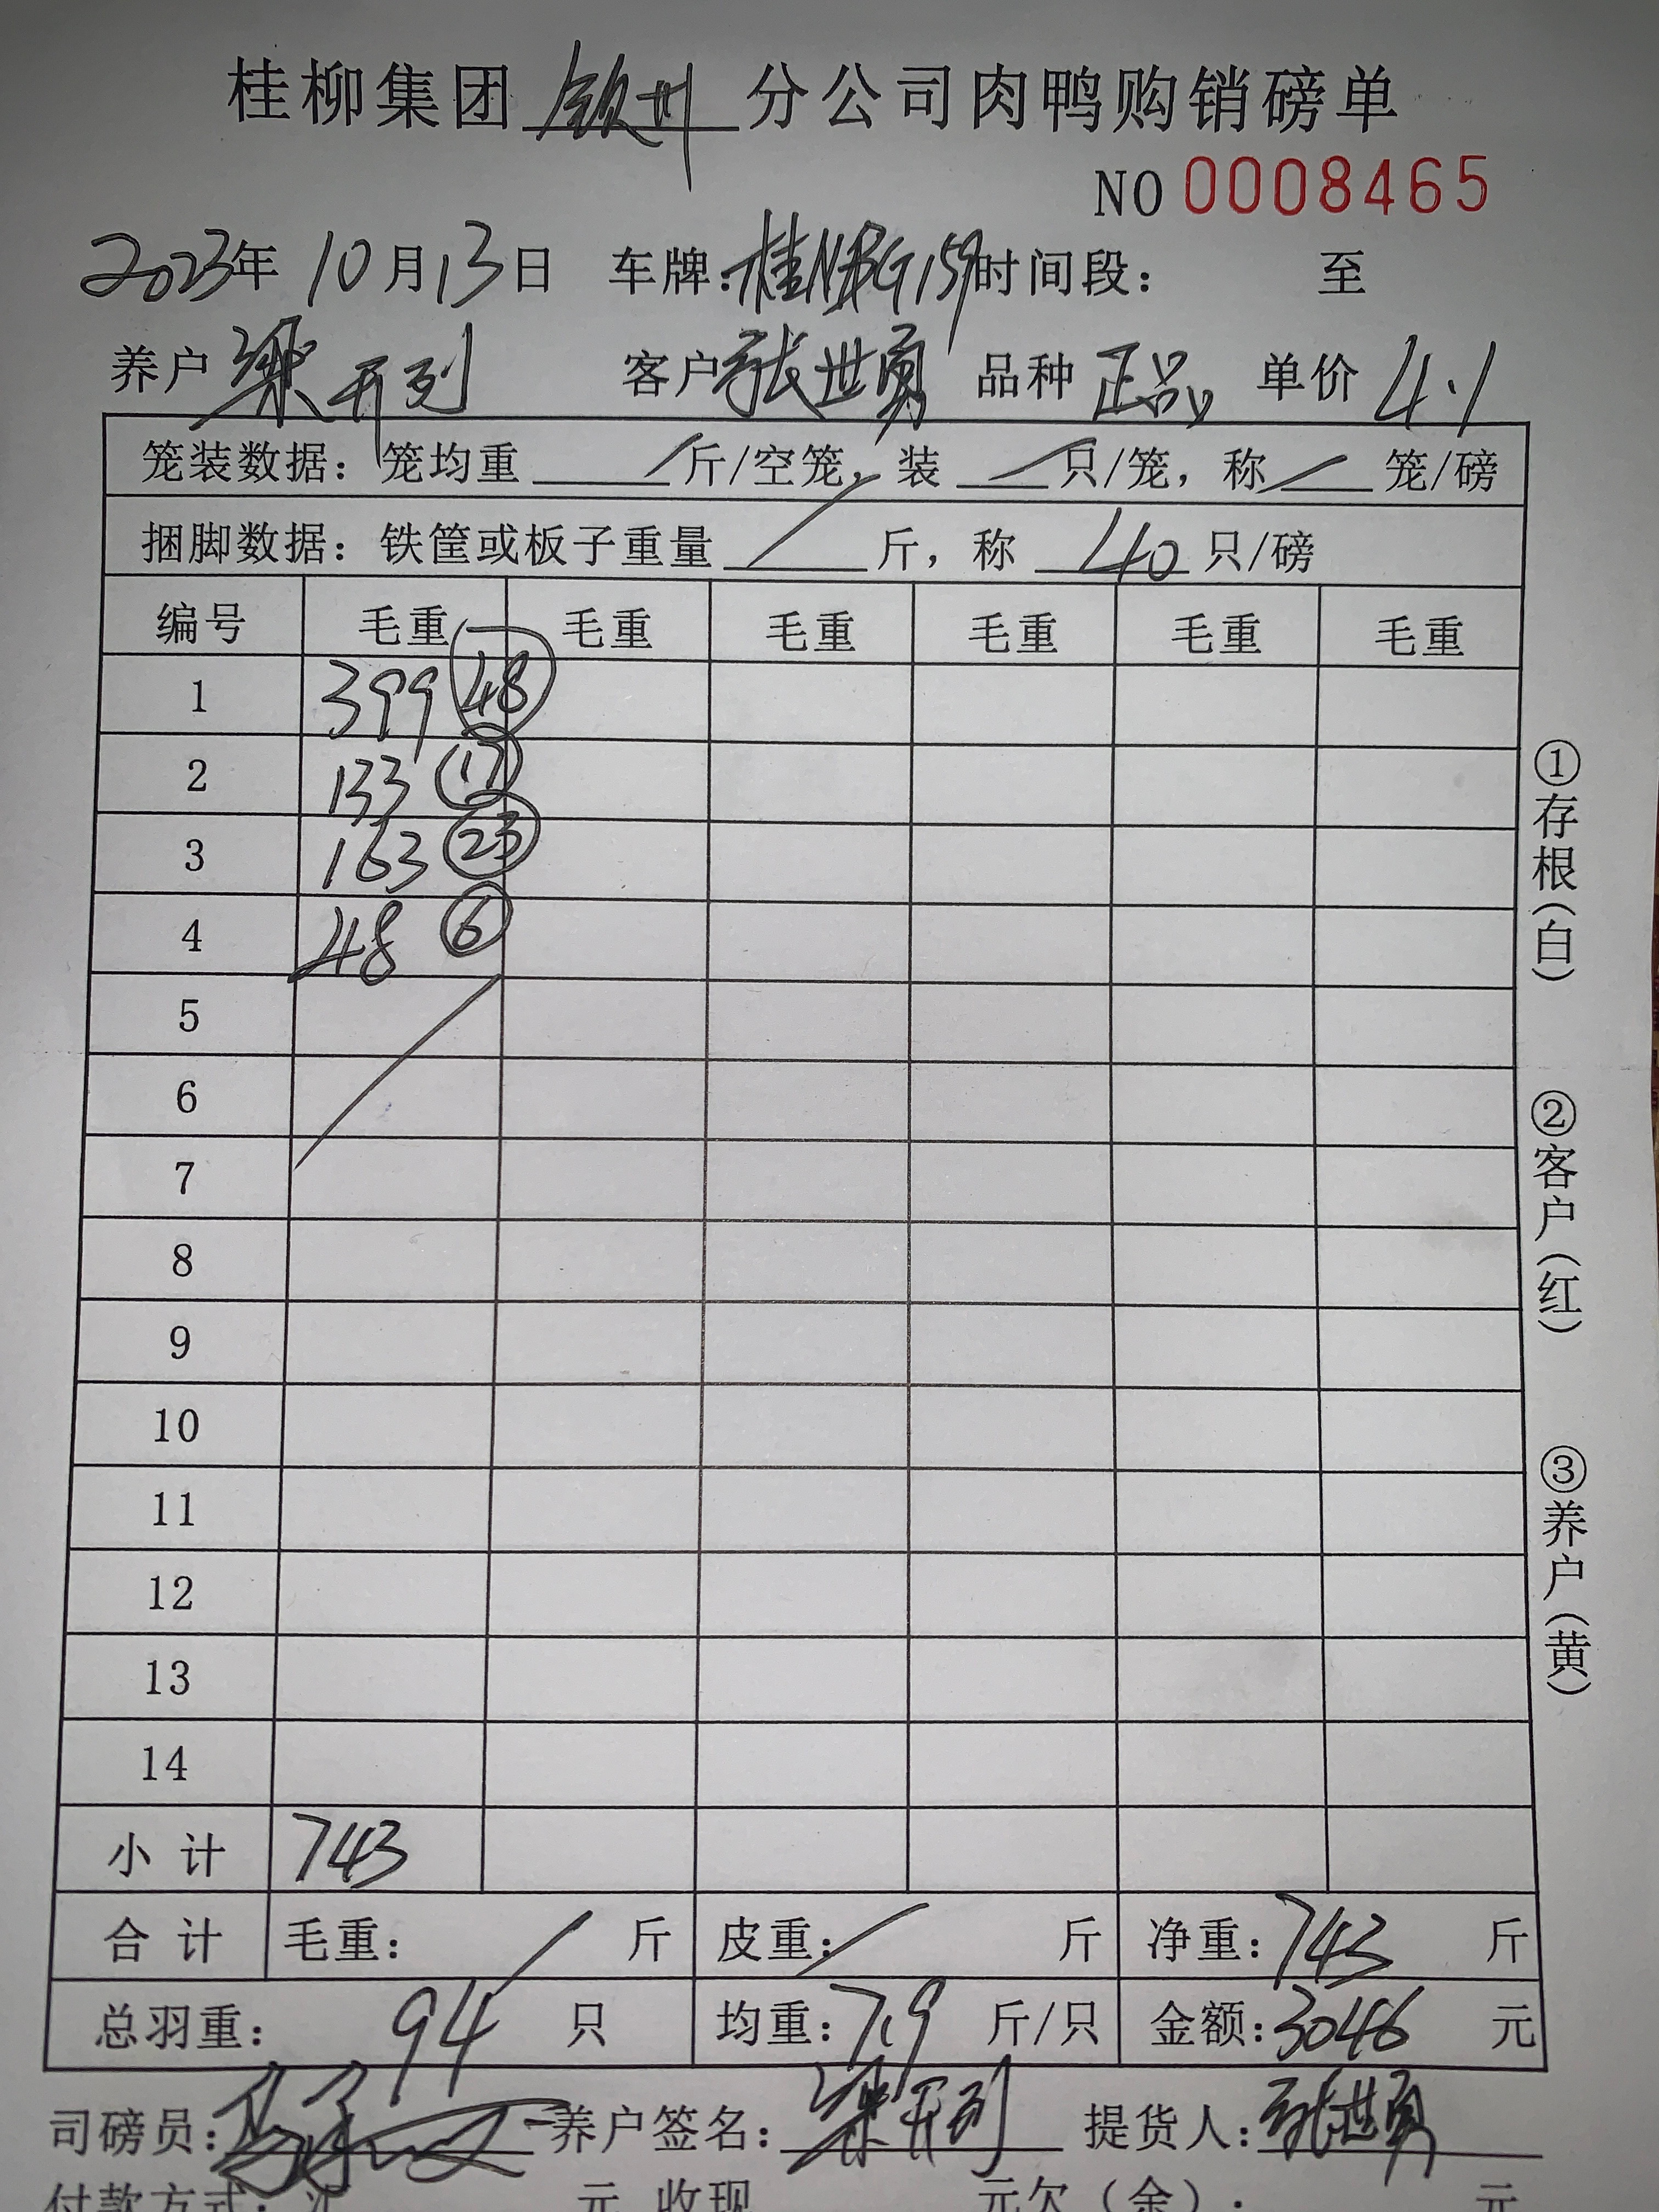 桂柳集团钦州分公司肉鸭购销磅单
NO 0008465
2023年 10月13日 车牌:桂NBG159时间段: 至
养户 梁开列 客户 张世勇 品种 正品 单价 4.1
笼装数据: 笼均重 / 斤/空笼, 装 / 只/笼, 称 / 笼/磅
捆脚数据: 铁筐或板子重量 / 斤, 称 40 只/磅
编号 毛重 毛重 毛重 毛重 毛重 毛重
1 399 48
2 133 17
3 163 23
4 48 6
5
6
7
8
9
10
11
12
13
14
小计 743
合计 毛重: / 斤 皮重: / 斤 净重: 743 斤
总羽重: 94 只 均重: 7.9 斤/只 金额: 3046 元
司磅员: 养户签名: 梁开列 提货人: 张世勇
付款方式: 元 收现 元欠(余): 元
①存根(白)
②客户(红)
③养户(黄)